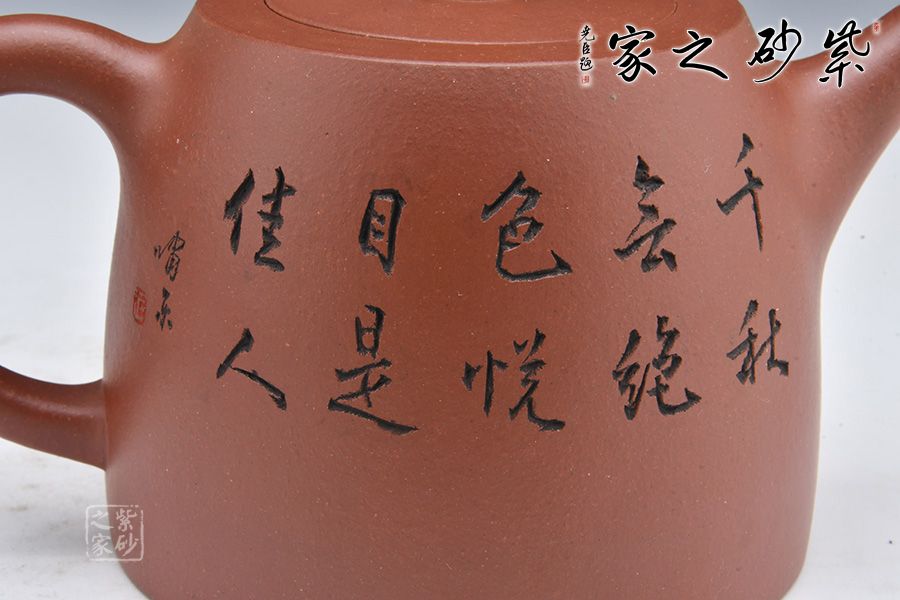 紫砂之家
千秋
無绝
色悦
目是
佳人
紫砂
之家